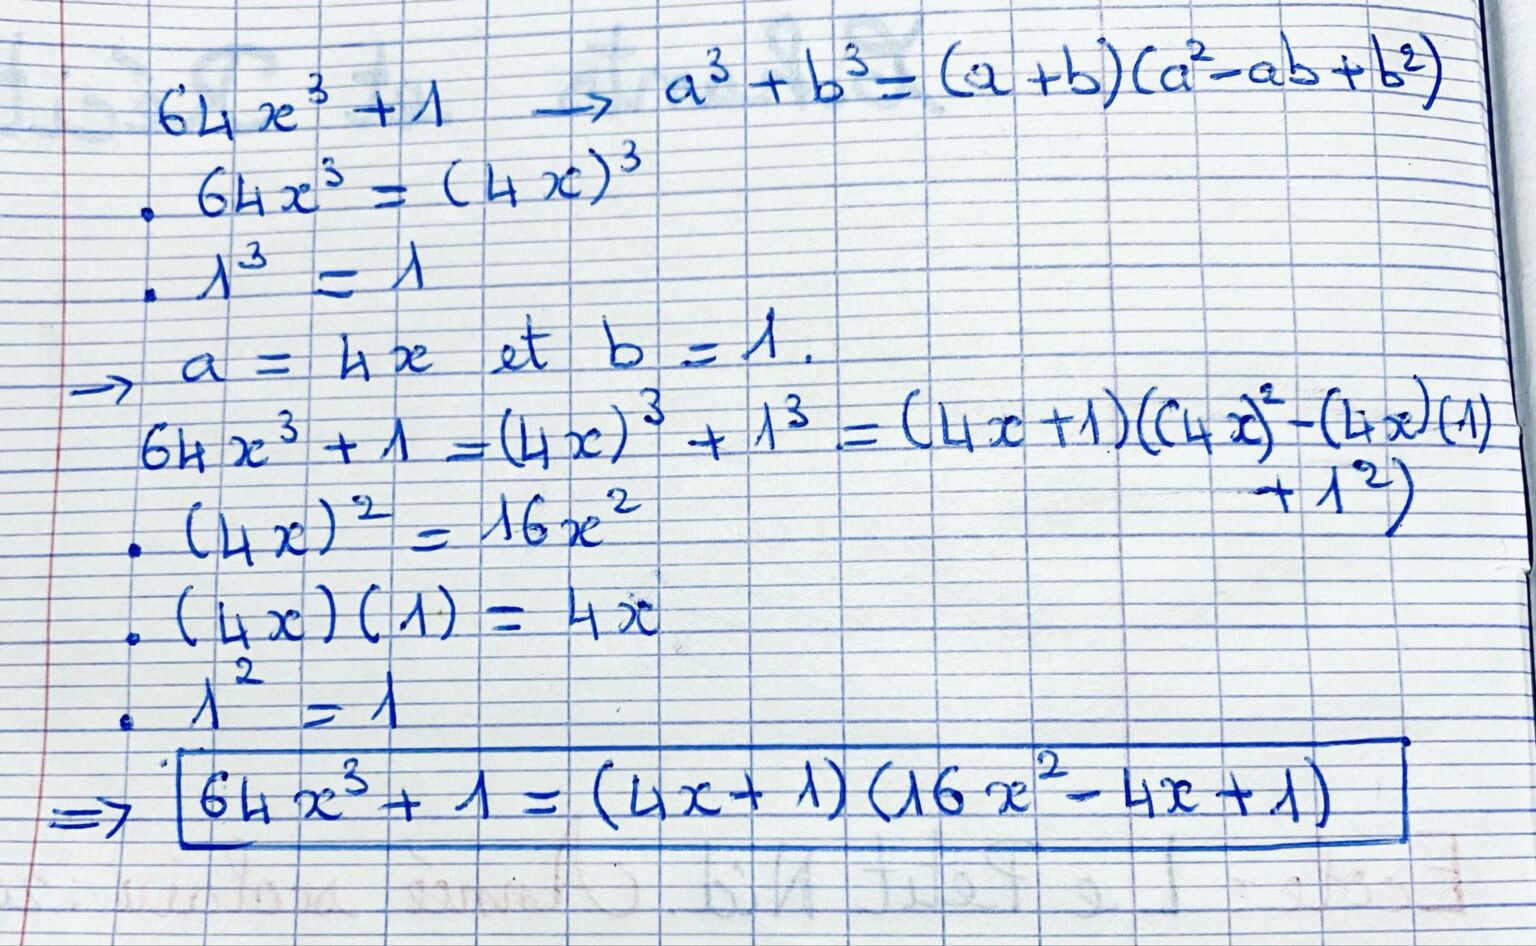 64x³ + 1 → a³ + b³ = (a + b)(a² - ab + b²)
. 64x³ = (4x)³
. 1³ = 1
→ a = 4x et b = 1.
64x³ + 1 = (4x)³ + 1³ = (4x + 1)((4x)² - (4x)(1)
+ 1²)
. (4x)² = 16x²
. (4x)(1) = 4x
. 1² = 1
⇒ 64x³ + 1 = (4x + 1)(16x² - 4x + 1)